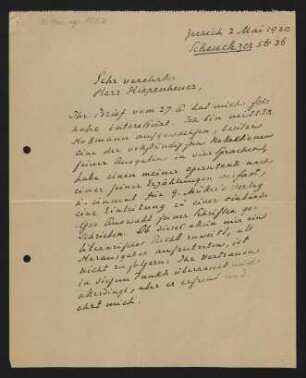 Zürich 2 Mai 1920
Scheuchzerstr 36
Sehr verehrter
Herr Kiepenheuer,
Ihr Brief vom 27 A. hat mich sehr
nahe interessiert. Ich bin mit E.T.A.
Hoffmann aufgewachsen, besitze
eine der vollständigsten Kollektionen
seiner Ausgaben in vier Sprachen,
habe einen meiner operntexte nach
einer seiner Erzählungen verfasst,
u. einmal für G. Müller's Verlag
eine Einleitung zu einer einbändi-
gen Auswahl seiner Schriften ge-
schrieben. Ob dieses allein mir ein
literarisches Recht zuweist, als
Herausgeber aufzutreten, ist
nicht zu folgern: Ihr Vertrauen
in diesem Punkt überrascht mich
allerdings, aber es erfreut und
ehrt mich.